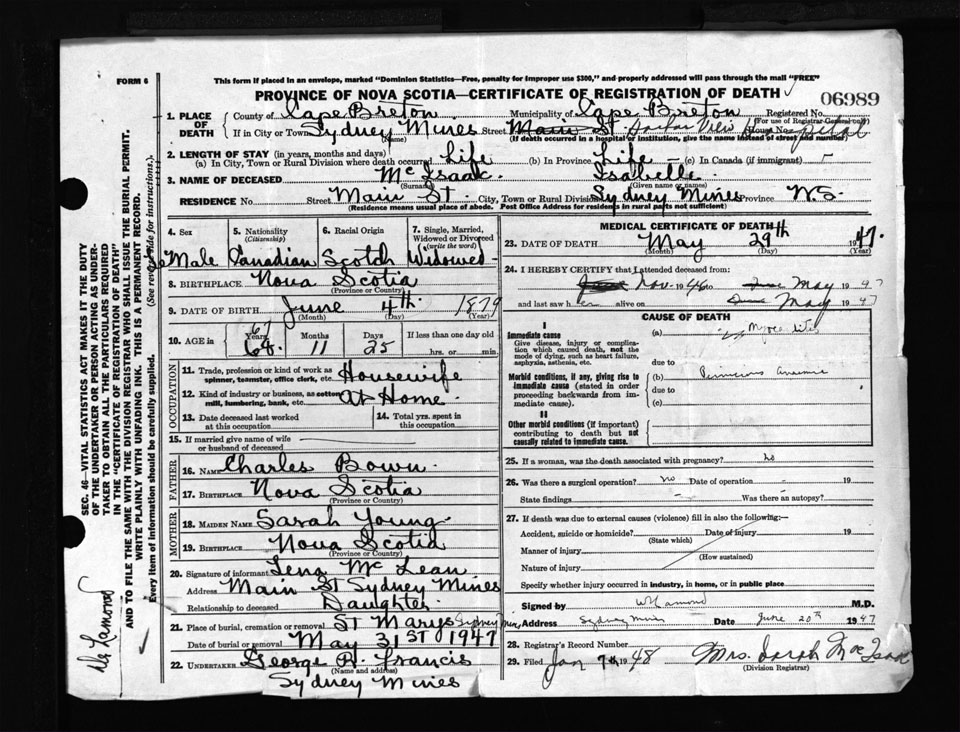 FORM 6
This form if placed in an envelope, marked "Dominion Statistics—Free, penalty for improper use $300," and properly addressed will pass through the mail "FREE"
PROVINCE OF NOVA SCOTIA—CERTIFICATE OF REGISTRATION OF DEATH
06989
1. PLACE OF DEATH County of Cape Breton Municipality of Cape Breton Registered No.
(For use of Registrar-General only)
If in City or Town Sydney Mines Street Main St Hospital House No.
(Name) (If death occurred in a hospital or institution, give the name instead of street and number)
2. LENGTH OF STAY (in years, months and days)
(a) In City, Town or Rural Division where death occurred Life (b) In Province Life — (c) In Canada (if immigrant) -
3. NAME OF DECEASED Mc Isaac Isabelle
(Surname) (Given name or names)
RESIDENCE No. Street Main St. City, Town or Rural Division Sydney Mines Province N.S.
(Residence means usual place of abode. Post Office Address for residents in rural parts not sufficient)
4. Sex 5. Nationality (Citizenship) 6. Racial Origin 7. Single, Married, Widowed or Divorced (write the word)
FeMale Canadian Scotch Widowed
8. BIRTHPLACE Nova Scotia
(Province or Country)
9. DATE OF BIRTH June 4th 1879
(Month) (Day) (Year)
10. AGE in Years Months Days If less than one day old
67 68 11 25 hrs. or min.
OCCUPATION
11. Trade, profession or kind of work as spinner, teamster, office clerk, etc. Housewife
12. Kind of industry or business, as cotton mill, lumbering, bank, etc. At Home
13. Date deceased last worked at this occupation
14. Total yrs. spent in this occupation
15. If married give name of wife or husband of deceased
FATHER
16. NAME Charles Bown
17. BIRTHPLACE Nova Scotia
(Province or Country)
MOTHER
18. MAIDEN NAME Sarah Young
19. BIRTHPLACE Nova Scotia
(Province or Country)
20. Signature of informant Lena Mc Lean
Address Main St Sydney Mines
Relationship to deceased Daughter
21. Place of burial, cremation or removal St Marys Sydney Mines
Date of burial or removal May 31st 1947
22. UNDERTAKER George R. Francis
(Name and address)
Sydney Mines
MEDICAL CERTIFICATE OF DEATH
23. DATE OF DEATH May 29th 1947.
(Month) (Day) (Year)
24. I HEREBY CERTIFY that I attended deceased from:
Nov. 1946 to May 1947
and last saw her alive on May 1947
CAUSE OF DEATH
I
Immediate cause
Give disease, injury or complication which caused death, not the mode of dying, such as heart failure, asphyxia, asthenia, etc.
(a) Myocarditis
due to
Morbid conditions, if any, giving rise to immediate cause (stated in order proceeding backwards from immediate cause).
(b) Pernicious Anaemia
due to
(c)
II
Other morbid conditions (if important) contributing to death but not causally related to immediate cause.
25. If a woman, was the death associated with pregnancy? No
26. Was there a surgical operation? no Date of operation - 19
State findings - Was there an autopsy?
27. If death was due to external causes (violence) fill in also the following:—
Accident, suicide or homicide? Date of injury 19
(State which)
Manner of injury
(How sustained)
Nature of injury
Specify whether injury occurred in industry, in home, or in public place
Signed by M.D.
Address Sydney Mines Date June 20th 1947
28. Registrar's Record Number
29. Filed Jan 7th 1948 Mrs. Sarah MacIsaac
(Division Registrar)
SEC. 46—VITAL STATISTICS ACT MAKES IT THE DUTY OF THE UNDERTAKER OR PERSON ACTING AS UNDERTAKER TO OBTAIN ALL THE PARTICULARS REQUIRED IN THE "CERTIFICATE OF REGISTRATION OF DEATH" AND TO FILE THE SAME WITH THE DIVISION REGISTRAR WHO SHALL ISSUE THE BURIAL PERMIT.
WRITE PLAINLY WITH UNFADING INK. THIS IS A PERMANENT RECORD.
Every item of information should be carefully supplied. (See reverse side for instructions.)